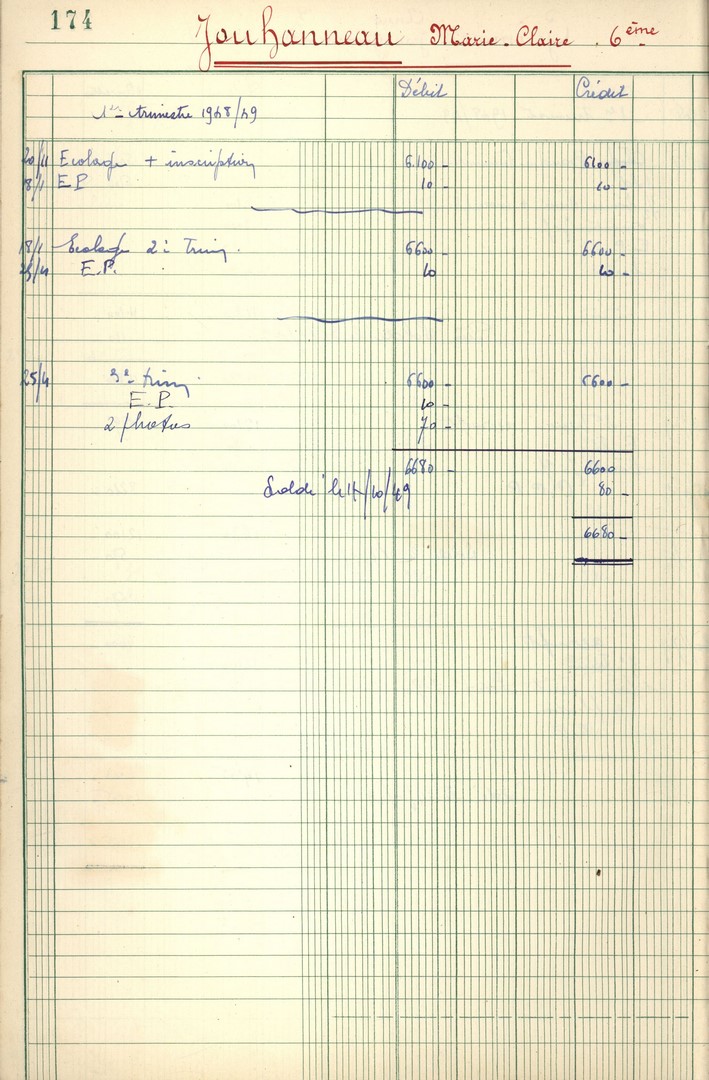 174
Jouhanneau Marie-Claire . 6ème
Débit Crédit
1er trimestre 1948/49
20/11 Ecolage + inscription 6.100 - 6100 -
18/1 E P 10 - 10 -
18/1 Ecolage 2e Trim. 6600 - 6600 -
25/4 E.P. 10 10 -
25/4 3e trim. 6600 - 6600 -
E.P. 10 -
2 photos 70 -
6680 - 6600
Soldé le /10/49 80 -
6680 -